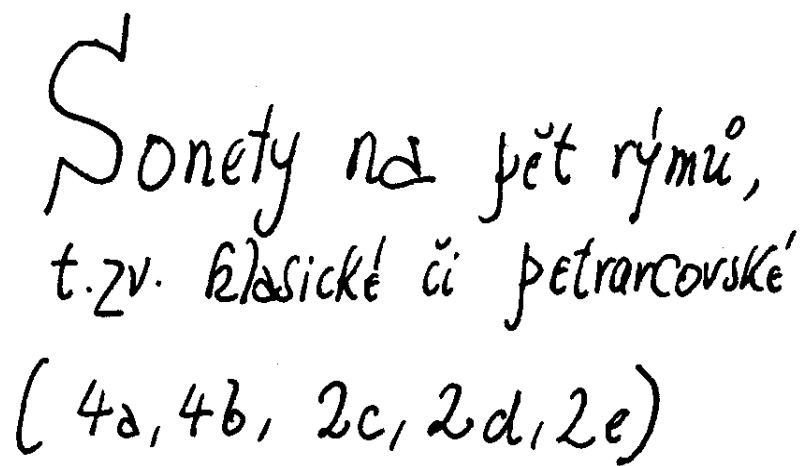 Sonety na pět rýmů,
t.zv. klasické či petrarcovské
(4a, 4b, 2c, 2d, 2e)